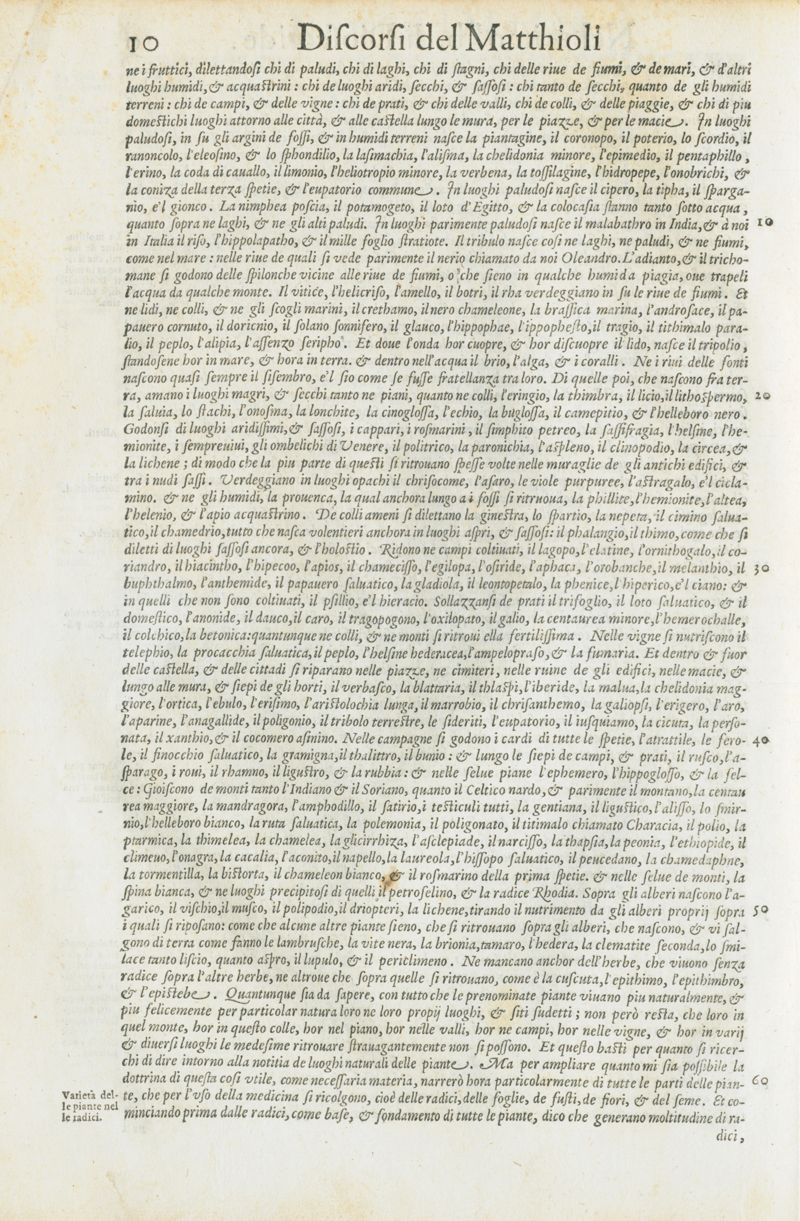 10 Diſcorſi del Matthioli
ne i fruttici, dilettandoſi chi di paludi, chi di laghi, chi di ſtagni, chi delle riue de fiumi, & de mari, & d'altri
luoghi humidi, & acquaſtrini : chi de luoghi aridi, ſecchi, & ſaſſoſi : chi tanto de ſecchi, quanto de gli humidi
terreni : chi de campi, & delle vigne : chi de prati, & chi delle valli, chi de colli, & delle piaggie, & chi di piu
domeſtichi luoghi attorno alle città, & alle caſtella lungo le mura, per le piazze, & per le macie. In luoghi
paludoſi, in ſu gli argini de foſſi, & in humidi terreni naſce la piantagine, il coronopo, il poterio, lo ſcordio, il
ranoncolo, l'eleoſino, & lo ſphondilio, la laſimachia, l'aliſma, la chelidonia minore, l'epimedio, il pentaphillo,
l'erino, la coda di cauallo, il limonio, l'heliotropio minore, la verbena, la toſſilagine, l'hidropepe, l'onobrichi, &
la coniza della terza ſpetie, & l'eupatorio commune. In luoghi paludoſi naſce il cipero, la tipha, il ſparga-
nio, e'l gionco. La nimphea poſcia, il potamogeto, il loto d'Egitto, & la colocaſia ſtanno tanto ſotto acqua,
quanto ſopra ne laghi, & ne gli alti paludi. In luoghi parimente paludoſi naſce il malabathro in India, & à noi 10
in Italia il riſo, l'hippolapatho, & il mille foglio ſtratiote. Il tribulo naſce coſi ne laghi, ne paludi, & ne fiumi,
come nel mare : nelle riue de quali ſi vede parimente il nerio chiamato da noi Oleandro. L'adianto, & il tricho-
mane ſi godono delle ſpilonche vicine alle riue de fiumi, o che ſieno in qualche humida piagia, oue trapeli
l'acqua da qualche monte. Il vitice, l'helicriſo, l'amello, il botri, il rha verdeggiano in ſu le riue de fiumi. Et
ne lidi, ne colli, & ne gli ſcogli marini, il crethamo, il nero chameleone, la braſſica marina, l'androſace, il pa-
pauero cornuto, il doricnio, il ſolano ſonnifero, il glauco, l'hippophae, l'ippopheſto, il tragio, il tithimalo para-
lio, il peplo, l'alipia, l'aſſenzo ſeripho. Et doue l'onda hor cuopre, & hor diſcuopre il lido, naſce il tripolio,
ſtandoſene hor in mare, & hora in terra. & dentro nell'acqua il brio, l'alga, & i coralli. Ne i riui delle fonti
naſcono quaſi ſempre il ſiſembro, e'l ſio come ſe fuſſe fratellanza tra loro. Di quelle poi, che naſcono fra ter-
ra, amano i luoghi magri, & ſecchi tanto ne piani, quanto ne colli, l'eringio, la thimbra, il licio, il lithoſpermo, 20
la ſaluia, lo ſtachi, l'onoſma, la lonchite, la cinogloſſa, l'echio, la bugloſſa, il camepitio, & l'helleboro nero.
Godonſi di luoghi aridiſſimi, & ſaſſoſi, i cappari, i roſmarini, il ſimphito petreo, la ſaſſifragia, l'helſine, l'he-
mionite, i ſempreuiui, gli ombelichi di Venere, il politrico, la paronichia, l'aſpleno, il clinopodio, la circea, &
la lichene ; di modo che la piu parte di queſti ſi ritrouano ſpeſſe volte nelle muraglie de gli antichi edifici, &
tra i nudi ſaſſi. Verdeggiano in luoghi opachi il chriſocome, l'aſaro, le viole purpuree, l'aſtragalo, e'l cicla-
mino. & ne gli humidi, la prouenca, la qual anchora lungo a i foſſi ſi ritruoua, la phillite, l'hemionite, l'altea,
l'helenio, & l'apio acquaſtrino. De colli ameni ſi dilettano la gineſtra, lo ſpartio, la nepeta, il cimino ſalua-
tico, il chamedrio, tutto che naſca volentieri anchora in luoghi aſpri, & ſaſſoſi: il phalangio, il thimo, come che ſi
diletti di luoghi ſaſſoſi ancora, & l'holoſtio. Ridono ne campi coltiuati, il lagopo, l'elatine, l'ornithogalo, il co-
riandro, il hiacintho, l'hipecoo, l'apios, il chameciſſo, l'egilopa, l'oſiride, l'aphaca, l'orobanche, il melanthio, il 30
buphthalmo, l'anthemide, il papauero ſaluatico, la gladiola, il leontopetalo, la phenice, l'hiperico, e'l ciano: &
in quelli che non ſono coltiuati, il pſillio, e'l hieracio. Sollazzanſi de prati il trifoglio, il loto ſaluatico, & il
domeſtico, l'anonide, il dauco, il caro, il tragopogono, l'oxilopato, il galio, la centaurea minore, l'hemerochalle,
il colchico, la betonica: quantunque ne colli, & ne monti ſi ritroui ella fertiliſſima. Nelle vigne ſi nutriſcono il
telephio, la procacchia ſaluatica, il peplo, l'helſine hederacea, l'ampelopraſo, & la fumaria. Et dentro & fuor
delle caſtella, & delle cittadi ſi riparano nelle piazze, ne cimiteri, nelle ruine de gli edifici, nelle macie, &
lungo alle mura, & ſiepi de gli horti, il verbaſco, la blattaria, il thlaſpi, l'iberide, la malua, la chelidonia mag-
giore, l'ortica, l'ebulo, l'eriſimo, l'ariſtolochia lunga, il marrobio, il chriſanthemo, la galiopſi, l'erigero, l'aro,
l'aparine, l'anagallide, il poligonio, il tribolo terreſtre, le ſideriti, l'eupatorio, il iuſquiamo, la cicuta, la perſo-
nata, il xanthio, & il cocomero aſinino. Nelle campagne ſi godono i cardi di tutte le ſpetie, l'atrattile, le fero- 40
le, il finocchio ſaluatico, la gramigna, il thalittro, il bunio : & lungo le ſiepi de campi, & prati, il ruſco, l'a-
ſparago, i roui, il rhamno, il liguſtro, & la rubbia : & nelle ſelue piane l'ephemero, l'hippogloſſo, & la fel-
ce : Gioiſcono de monti tanto l'Indiano & il Soriano, quanto il Celtico nardo, & parimente il montano, la centau
rea maggiore, la mandragora, l'amphodillo, il ſatirio, i teſticuli tutti, la gentiana, il liguſtico, l'aliſſo, lo ſmir-
nio, l'helleboro bianco, la ruta ſaluatica, la polemonia, il poligonato, il titimalo chiamato Characia, il polio, la
ptarmica, la thimelea, la chamelea, la glicirrhiza, l'aſclepiade, il narciſſo, la thapſia, la peonia, l'ethiopide, il
climeuo, l'onagra, la cacalia, l'aconito, il napello, la laureola, l'hiſſopo ſaluatico, il peucedano, la chamedaphne,
la tormentilla, la biſtorta, il chameleon bianco, & il roſmarino della prima ſpetie. & nelle ſelue de monti, la
ſpina bianca, & ne luoghi precipitoſi di quelli il petroſelino, & la radice Rhodia. Sopra gli alberi naſcono l'a-
garico, il viſchio, il muſco, il polipodio, il driopteri, la lichene, tirando il nutrimento da gli alberi proprij ſopra 50
i quali ſi ripoſano: come che alcune altre piante ſieno, che ſi ritrouano ſopra gli alberi, che naſcono, & vi ſal-
gono di terra come fanno le lambruſche, la vite nera, la brionia, tamaro, l'hedera, la clematite ſeconda, lo ſmi-
lace tanto liſcio, quanto aſpro, il lupulo, & il periclimeno. Ne mancano anchor dell'herbe, che viuono ſenza
radice ſopra l'altre herbe, ne altroue che ſopra quelle ſi ritrouano, come è la cuſcuta, l'epithimo, l'epithimbro,
& l'epiſtebe. Quantunque ſia da ſapere, con tutto che le prenominate piante viuano piu naturalmente, &
piu felicemente per particolar natura loro ne loro propij luoghi, & ſiti ſudetti ; non però reſta, che loro in
quel monte, hor in queſto colle, hor nel piano, hor nelle valli, hor ne campi, hor nelle vigne, & hor in varij
& diuerſi luoghi le medeſime ritrouare ſtrauagantemente non ſi poſſono. Et queſto baſti per quanto ſi ricer-
chi di dire intorno alla notitia de luoghi naturali delle piante. Ma per ampliare quanto mi ſia poſſibile la
dottrina di queſta coſi vtile, come neceſſaria materia, narrerò hora particolarmente di tutte le parti delle pian- 60
Varietà del-
le piante nel
le radici.
te, che per l'vſo della medicina ſi ricolgono, cioè delle radici, delle foglie, de fuſti, de fiori, & del ſeme. Et co-
minciando prima dalle radici, come baſe, & fondamento di tutte le piante, dico che generano moltitudine di ra-
dici,